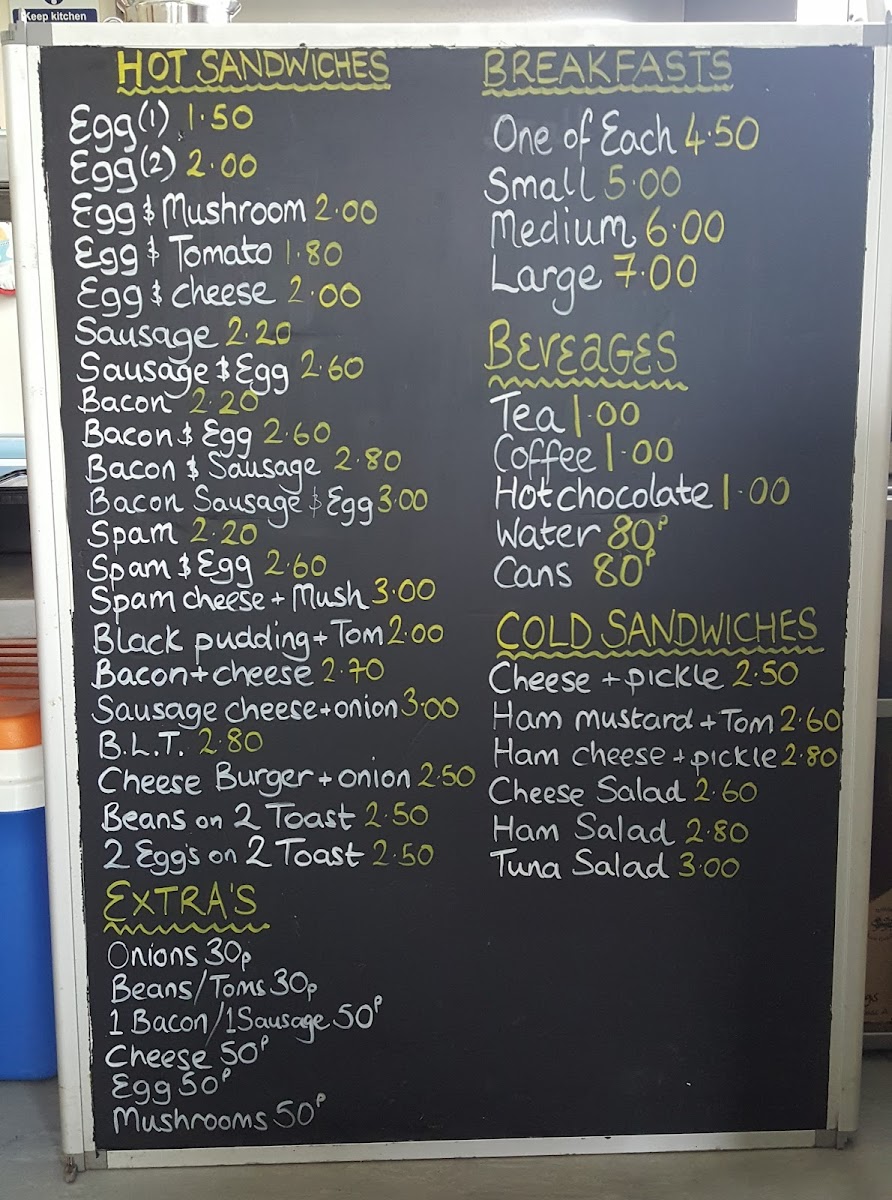 Keep kitchen
HOT SANDWICHES
Egg(1) 1.50
Egg(2) 2.00
Egg & Mushroom 2.00
Egg & Tomato 1.80
Egg & cheese 2.00
Sausage 2.20
Sausage & Egg 2.60
Bacon 2.20
Bacon & Egg 2.60
Bacon & Sausage 2.80
Bacon Sausage & Egg 3.00
Spam 2.20
Spam & Egg 2.60
Spam cheese + Mush 3.00
Black pudding + Tom 2.00
Bacon + cheese 2.70
Sausage cheese + onion 3.00
B.L.T. 2.80
Cheese Burger + onion 2.50
Beans on 2 Toast 2.50
2 Egg's on 2 Toast 2.50
EXTRA'S
Onions 30p
Beans/Toms 30p
1 Bacon/1 Sausage 50p
Cheese 50p
Egg 50p
Mushrooms 50p
BREAKFASTS
One of Each 4.50
Small 5.00
Medium 6.00
Large 7.00
BEVEAGES
Tea 1.00
Coffee 1.00
Hot chocolate 1.00
Water 80p
Cans 80p
COLD SANDWICHES
Cheese + pickle 2.50
Ham mustard + Tom 2.60
Ham cheese + pickle 2.80
Cheese Salad 2.60
Ham Salad 2.80
Tuna Salad 3.00